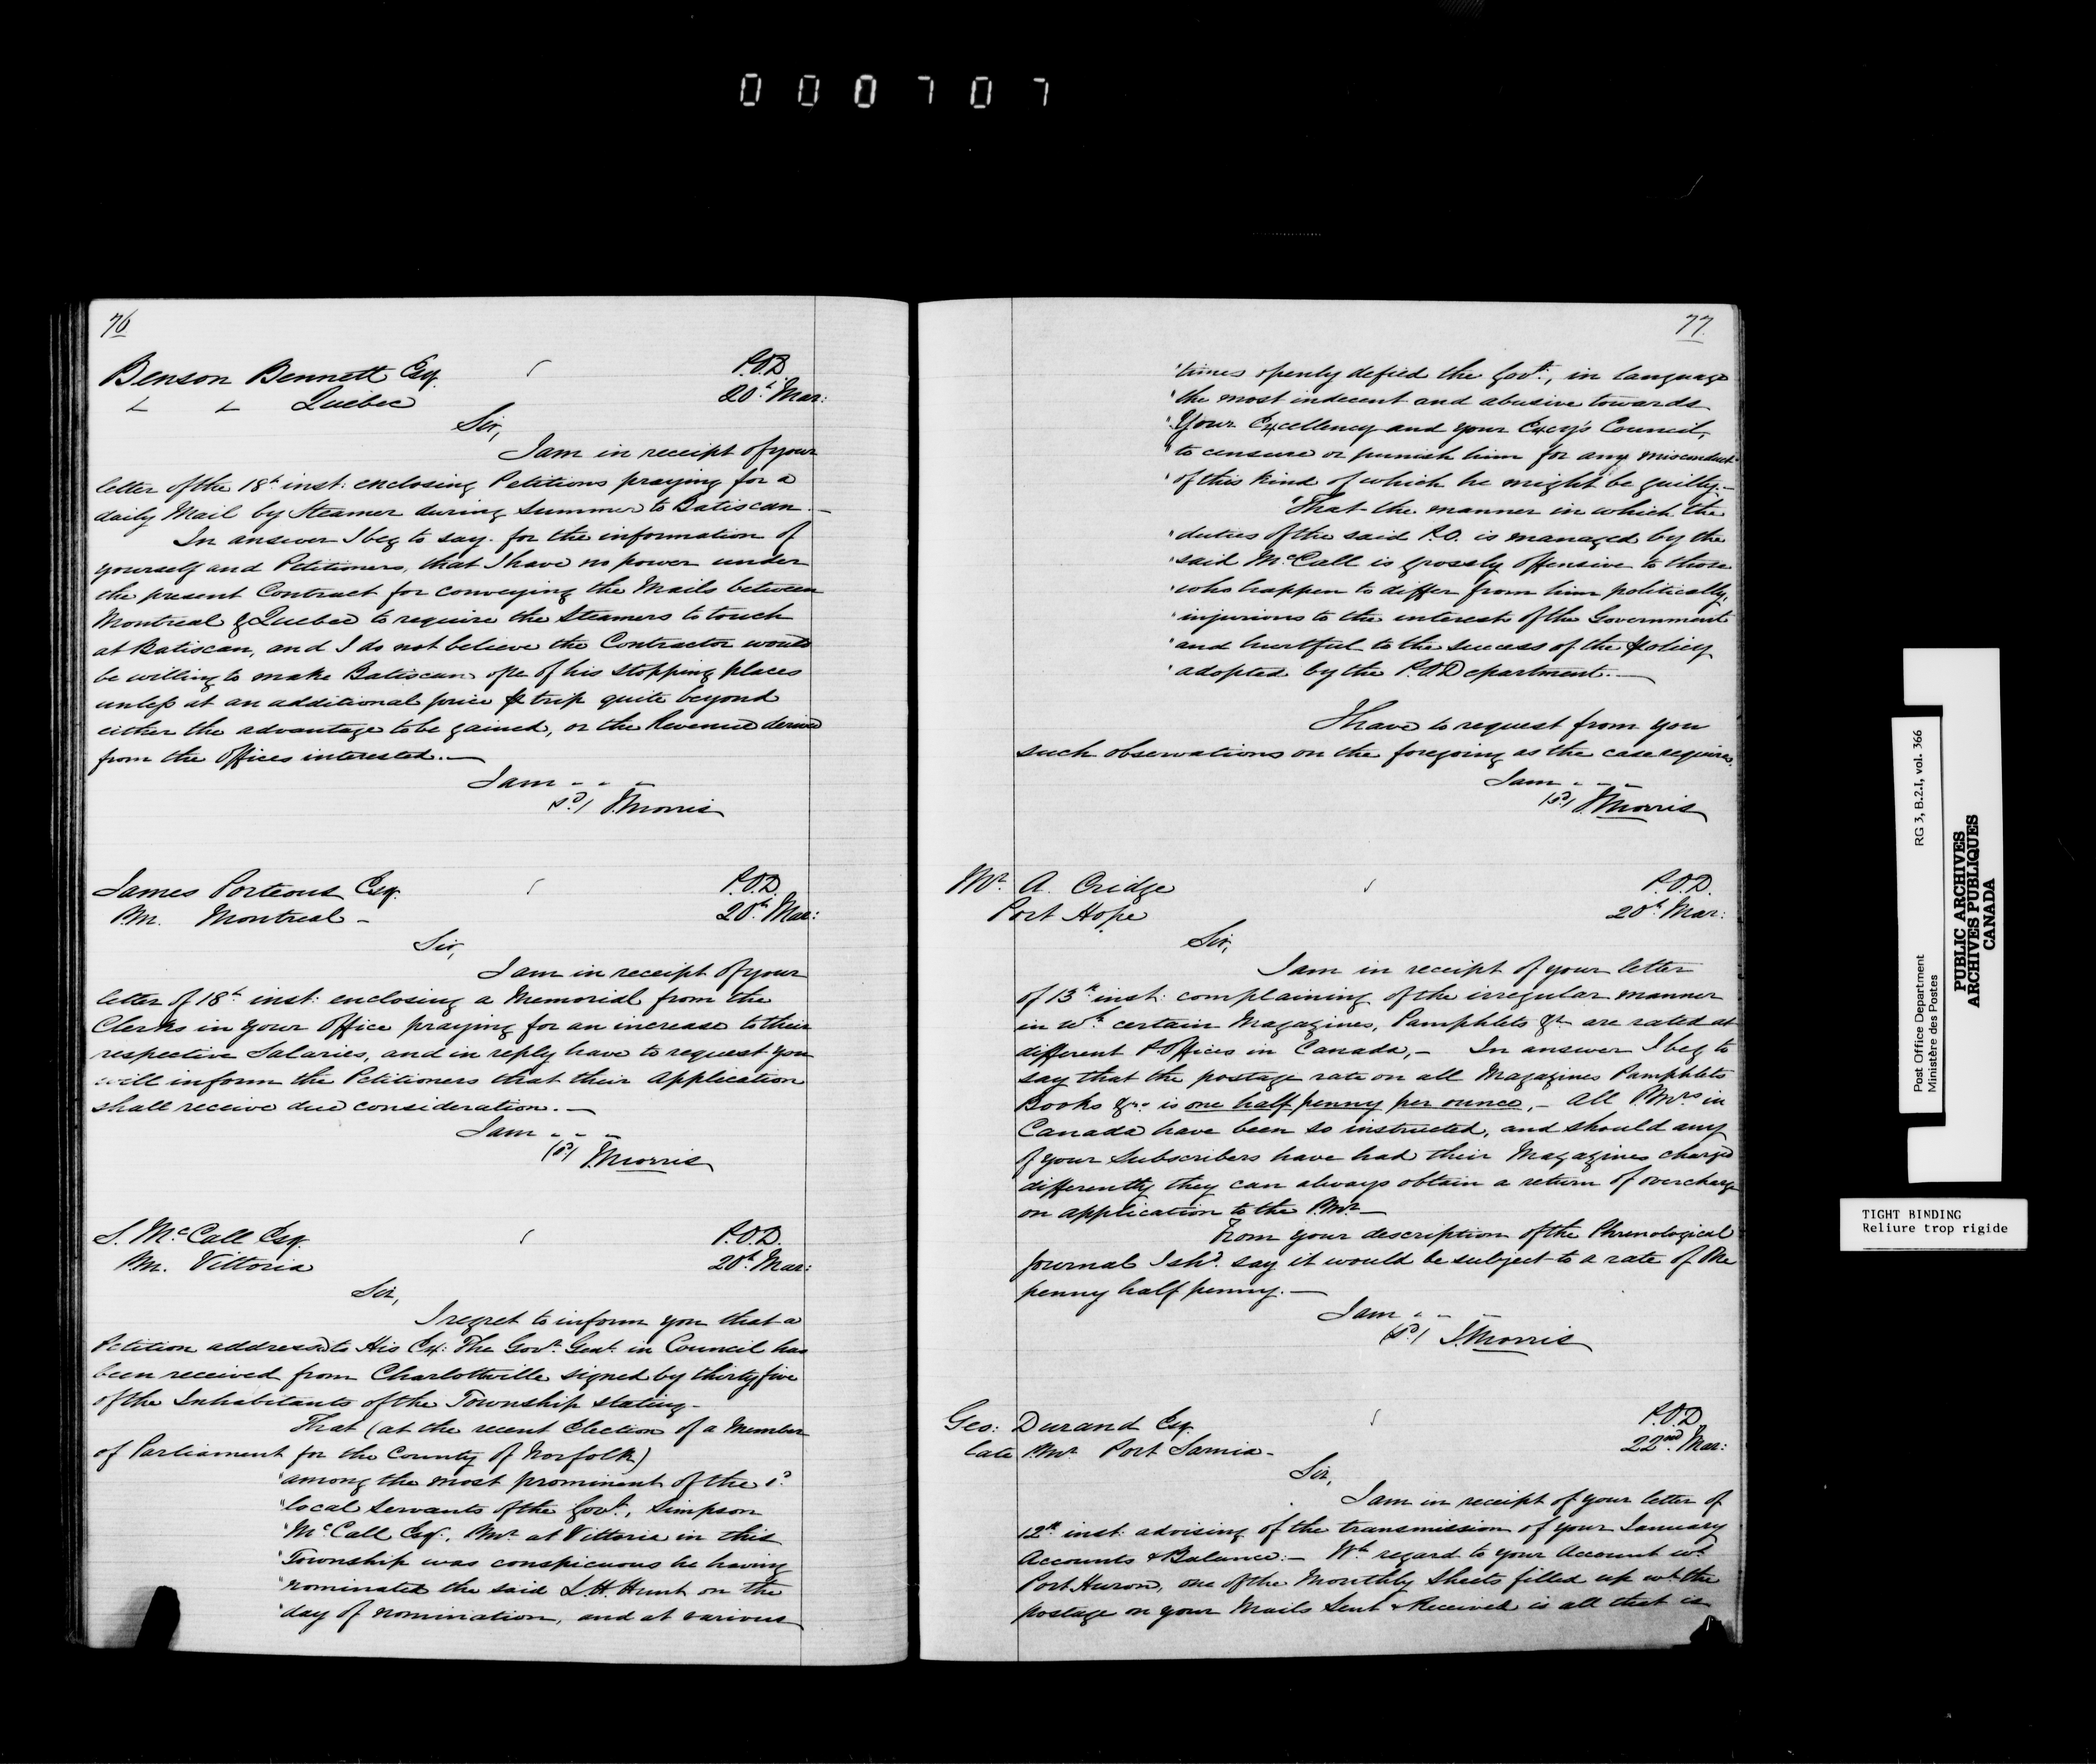 0 0 0 7 0 7
76
Benson Bennett Esq.
Quebec
P.O.D
20th Mar:
Sir,
I am in receipt of your
letter of the 18th inst: enclosing Petitions praying for a
daily Mail by Steamer during Summer to Batiscan.—
In answer I beg to say for the information of
yourself and Petitioners, that I have no power under
the present Contract for conveying the Mails between
Montreal & Quebec to require the Steamers to touch
at Batiscan, and I do not believe the Contractor would
be willing to make Batiscan one of his stopping places
unless at an additional price trip quite beyond
either the advantage to be gained, or the Revenue derived
from the Offices interested.—
I am - - -
(sd) J. Morris
James Porteous Esq.
P.M. Montreal -
P.O.D.
20th Mar:
Sir,
I am in receipt of your
letter of 18th inst: enclosing a Memorial from the
Clerks in your Office praying for an increase to their
respective Salaries, and in reply have to request you
will inform the Petitioners that their Application
shall receive due consideration.—
I am - - -
(sd) J. Morris
S. McCall Esq.
P.M. Vittoria
P.O.D.
20th Mar:
Sir,
I regret to inform you that a
Petition addressed to His Ex: The Govr. Genl. in Council has
been received from Charlotteville signed by thirty five
of the Inhabitants of the Township stating-
That (at the recent Election of a Member
of Parliament for the County of Norfolk)
"among the most prominent of the
"local servants of the Govt., Simpson
"McCall Esqr. P.Mr at Vittoria in this
"Township was conspicuous he having
"nominated the said L.H. Hunt on the
"day of nomination, and at various
77
"times openly defied the Govt., in language
"the most indecent and abusive towards
"Your Excellency and your Excy's Council,
"to censure or punish him for any misconduct
"of this kind of which he might be guilty.—
"That the manner in which the
"duties of the said P.O. is managed by the
"said McCall is grossly offensive to those
"who happen to differ from him politically,
"injurious to the interest of the Government
"and hurtful to the success of the policy
"adopted by the P.O. Department.—
I have to request from you
such observations on the foregoing as the case requires.
I am - - -
(sd) J. Morris
Mr. A. Cridge
Port Hope
P.O.D.
20th Mar:
Sir,
I am in receipt of your letter
of 13th inst: complaining of the irregular manner
in wh. certain Magazines, Pamphlets &c are rated at
different P. Offices in Canada,— In answer I beg to
say that the postage rate on all Magazines Pamphlets
Books &c. is one half penny per ounce,— All P.Mrs in
Canada have been so instructed, and should any
of your Subscribers have had their Magazines charged
differently they can always obtain a return of overcharge
on application to the P.Mr—
From your description of the Phrenological
Journal I shd. say it would be subject to a rate of One
penny half penny.—
I am - - -
(sd) J. Morris
Geo: Durand Esq.
late P.Mr Port Sarnia-
P.O.D.
22nd Mar:
Sir,
I am in receipt of your letter of
12th inst: advising of the transmission of your January
Accounts & Balance:— Wth regard to your Account wt.
Port Huron, one of the Monthly Sheets filled up wt. the
postage on your Mails Sent & Received is all that is
Post Office Department RG 3, B.2.I, vol. 366
Ministère des Postes
PUBLIC ARCHIVES
ARCHIVES PUBLIQUES
CANADA
TIGHT BINDING
Reliure trop rigide